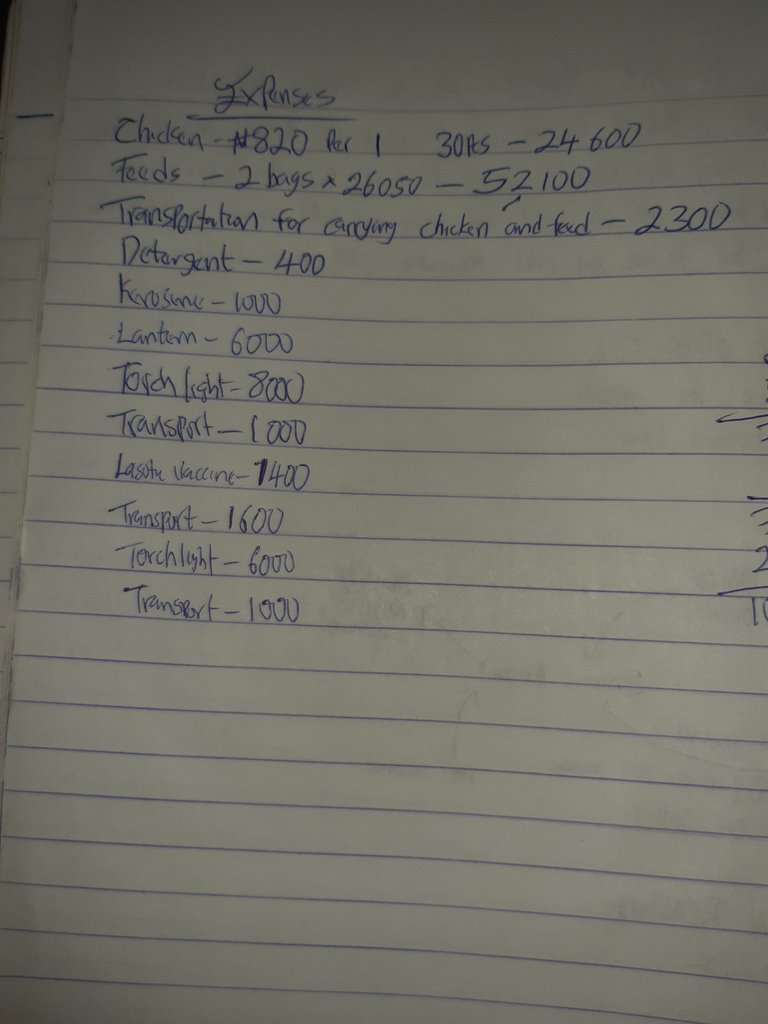 Expenses
Chicken - ₦820 Per 1 30Pcs - 24 600
Feeds - 2 bags × 26050 - 52100
Transportation for carrying chicken and feed - 2300
Detergent - 400
Kerosene - 1000
Lantern - 6000
Torch light - 8000
Transport - 1000
Lasota Vaccine - 1400
Transport - 1600
Torchlight - 6000
Transport - 1000
2
10